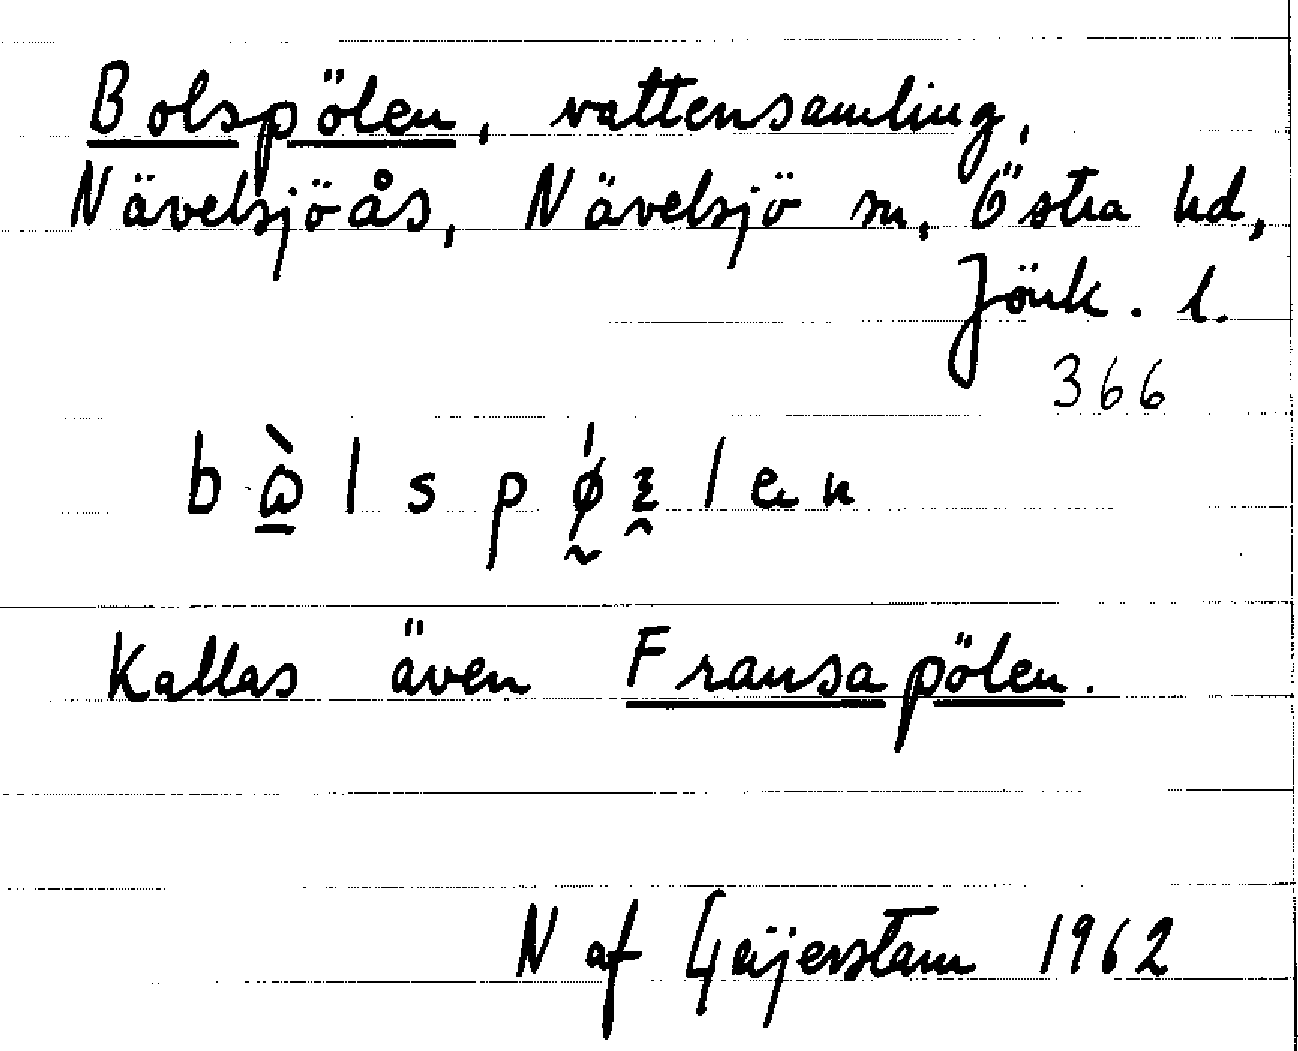 Bolspölen, vattensamling,
Nävelsjöås, Nävelsjö sn, Östra hd,
Jönk. l.
366
Kallas även Fransapölen.
N af Geijerstam 1962